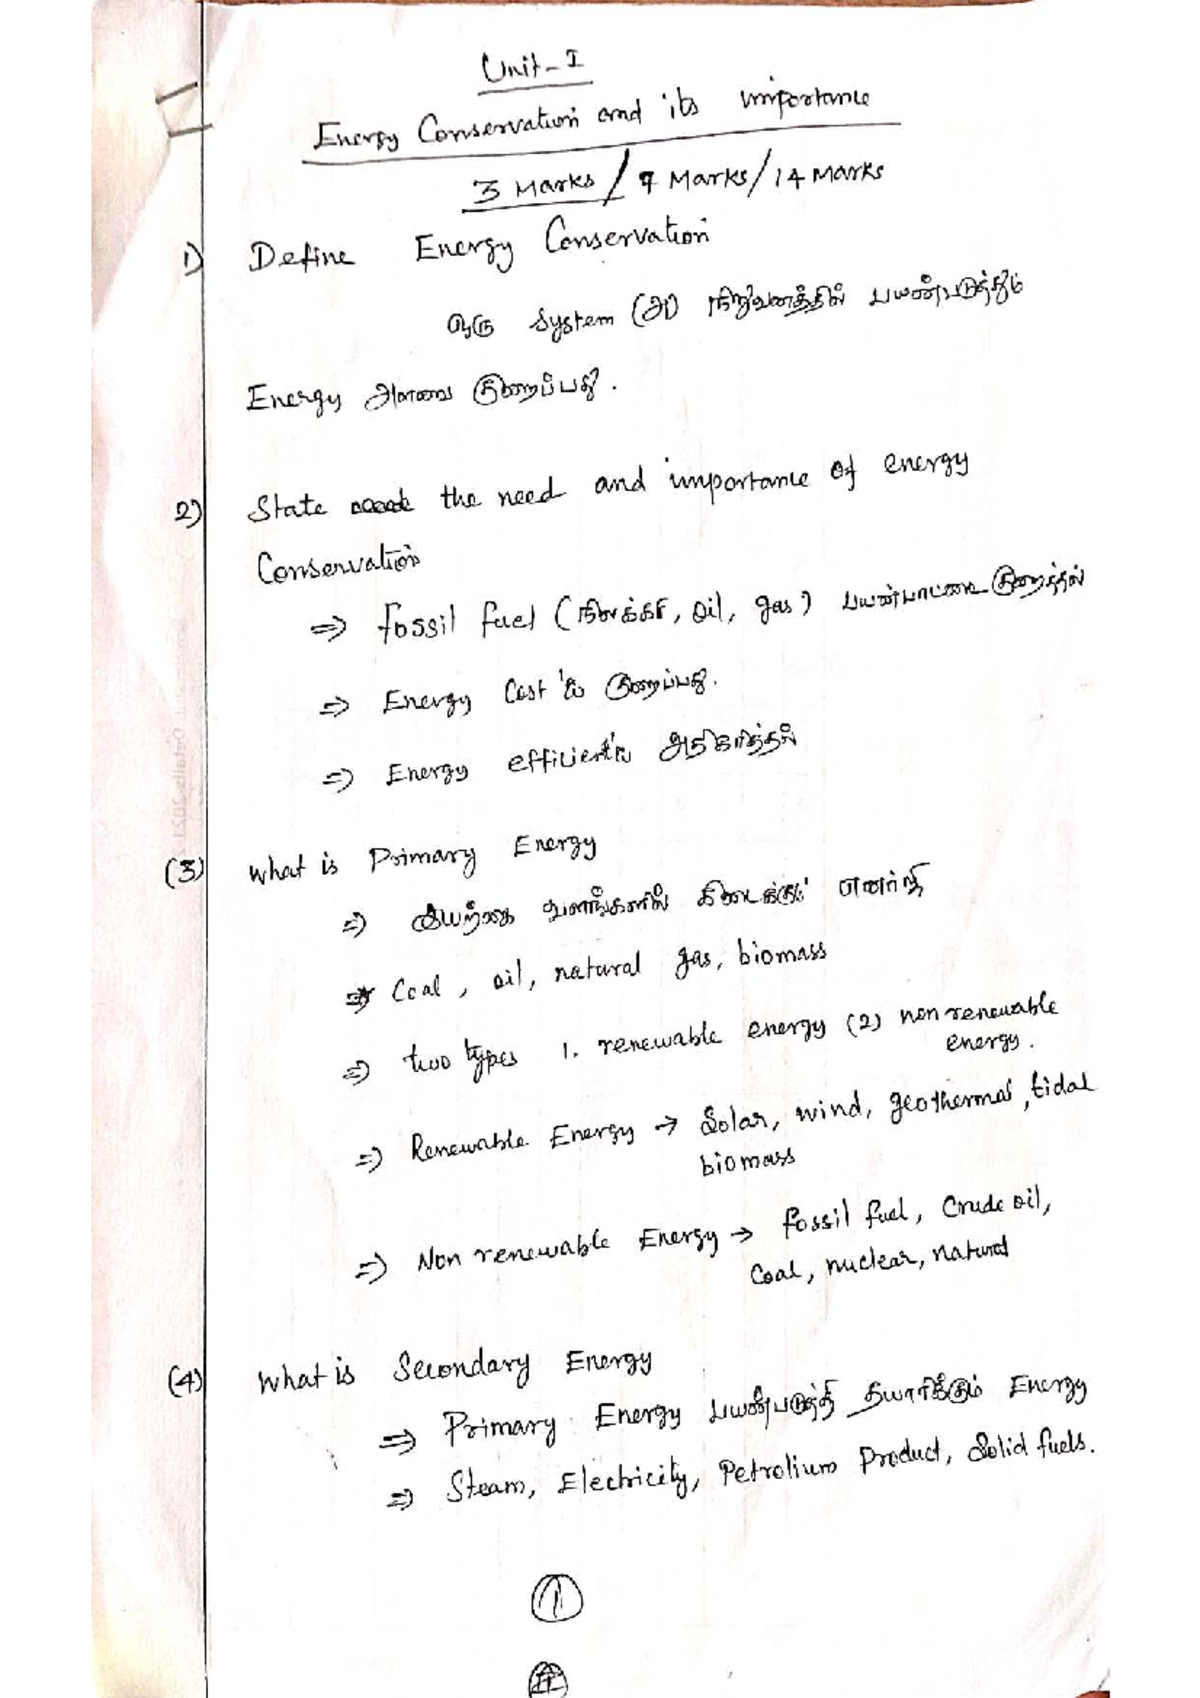 Unit-I
Energy Conservation and its importance
3 Marks / 7 Marks / 14 Marks
1) Define Energy Conservation
ஒரு System (அ) நிறுவனத்தில் பயன்படுத்தும்
Energy அளவை குறைப்பது.
2) State the need and importance of energy
Conservation
⇒ Fossil fuel (நிலக்கரி, oil, gas) பயன்பாட்டை குறைத்தல்
⇒ Energy Cost'ஐ குறைப்பது.
⇒ Energy efficient'ஐ அதிகரித்தல்
(3) What is Primary Energy
⇒ இயற்கை வளங்களில் கிடைக்கும் எனர்ஜி
⇒ Coal, oil, natural gas, biomass
⇒ two types 1. renewable energy (2) non renewable
energy.
⇒ Renewable Energy → Solar, wind, geothermal, tidal
biomass
⇒ Non renewable Energy → fossil fuel, Crude oil,
Coal, nuclear, natural
(4) What is Secondary Energy
⇒ Primary Energy பயன்படுத்தி தயாரிக்கும் Energy
⇒ Steam, Electricity, Petrolium Product, Solid fuels.
1